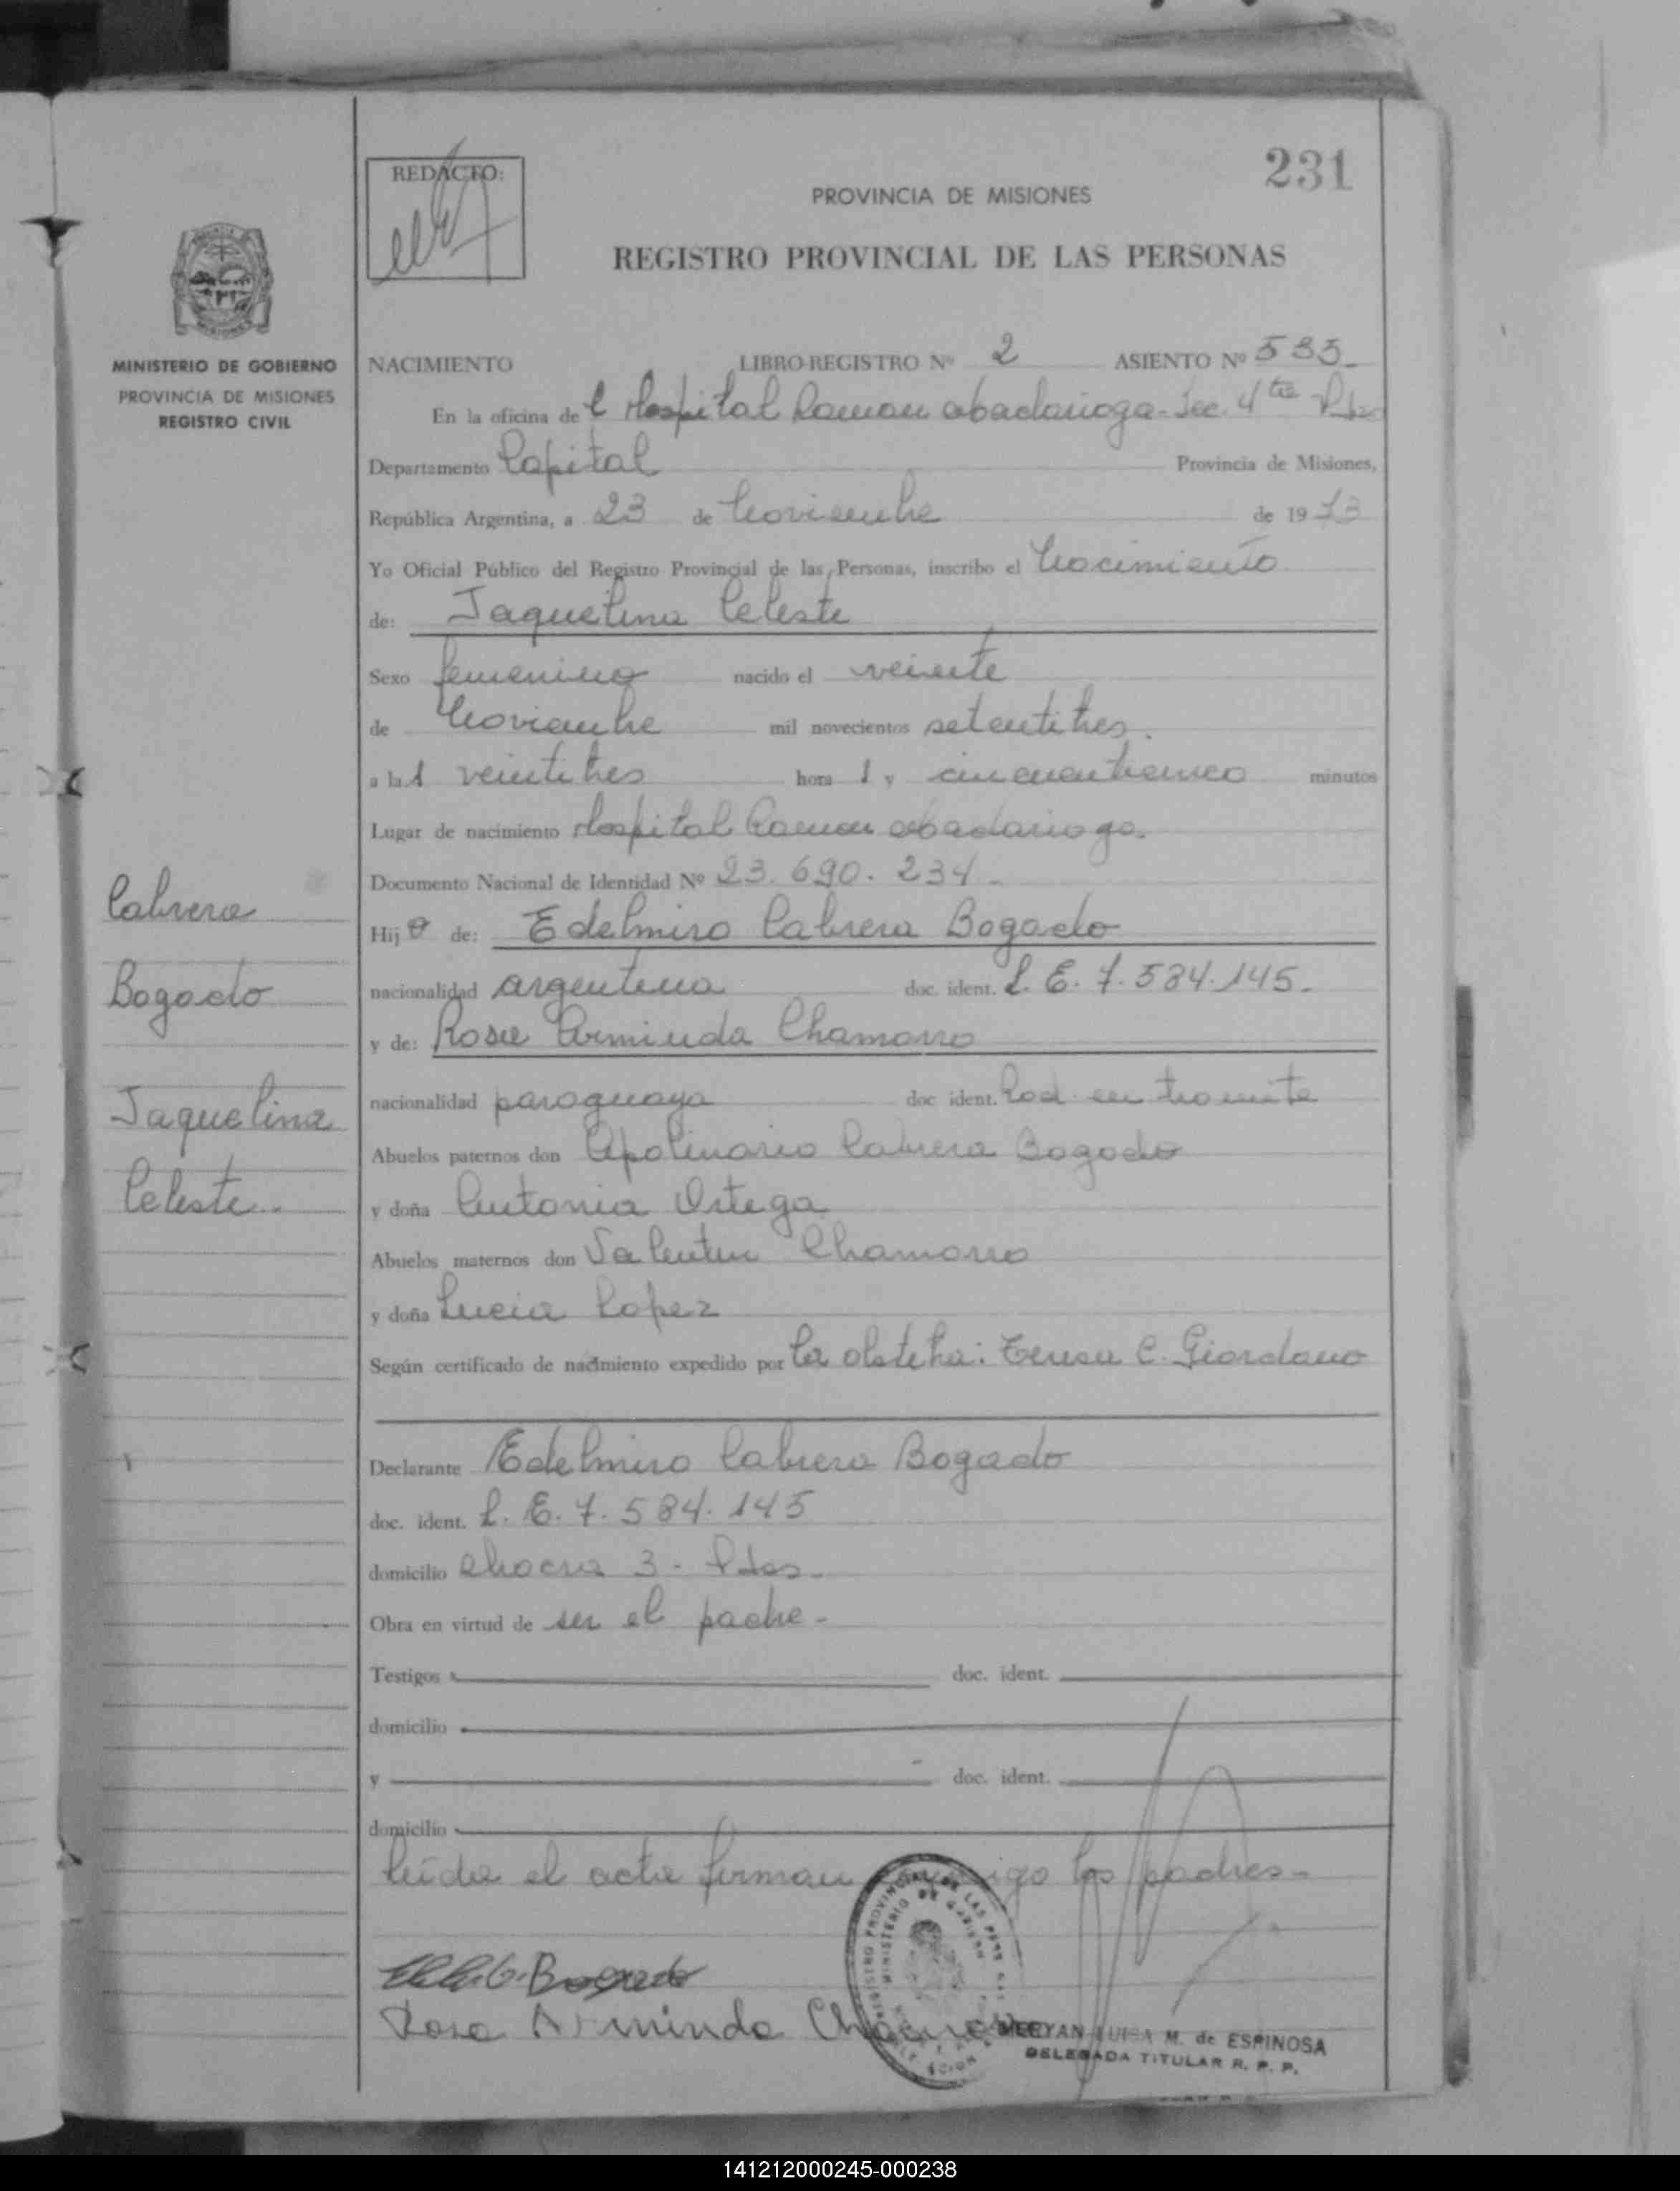 231
REDACTO:
PROVINCIA DE MISIONES
REGISTRO PROVINCIAL DE LAS PERSONAS
MINISTERIO DE GOBIERNO
PROVINCIA DE MISIONES
REGISTRO CIVIL
NACIMIENTO LIBRO-REGISTRO Nº 2 ASIENTO Nº 535
En la oficina del Hospital Ramon abadarioga - Sec. 4ta
Departamento Capital Provincia de Misiones,
República Argentina, a 23 de Noviembre de 1973
Yo Oficial Público del Registro Provincial de las Personas, inscribo el Nacimiento
de: Jaquelina Celeste
Sexo femenino nacido el veinte
de Noviembre mil novecientos setentitres.
a las veintitres hora s y cincuenticinco minutos
Lugar de nacimiento Hospital Ramon abadarioga.
Documento Nacional de Identidad Nº 23.690.234-
Hija de: Edelmiro Cabrera Bogado
nacionalidad argentina doc. ident. L. E. 7.584.145.
y de: Rosa Arminda Chamorro
nacionalidad paraguaya doc ident. Rad. en tramite
Abuelos paternos don Apolinario Cabrera Bogado
y doña Antonia Ortega
Abuelos maternos don Valentin Chamorro
y doña Lucia Lopez
Según certificado de nacimiento expedido por la obstetra: Teresa C. Giordano
Cabrera
Bogado
Jaquelina
Celeste.-
Declarante Edelmiro Cabrera Bogado
doc. ident. L. E. 7.584.145
domicilio Chacra 3 - Pdas.
Obra en virtud de ser el padre -
Testigos doc. ident.
domicilio
y doc. ident.
domicilio
leída el acta firman conmigo los padres-
Bogado
Rosa Arminda Chamorro
REGISTRO PROVINCIAL DE LAS PERS
MINISTERIO DE GOBIERNO
LUISA M. de ESPINOSA
DELEGADA TITULAR R. P. P.
141212000245-000238